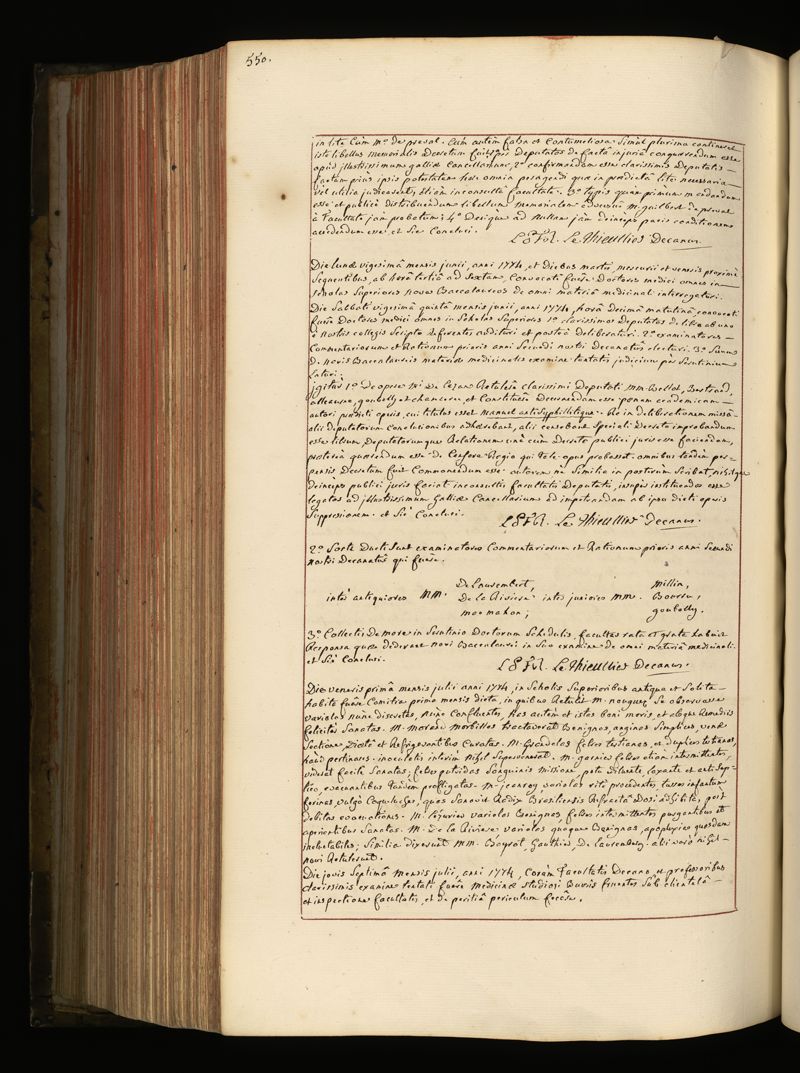 550.
in lite cum m.º de preval. Cum autem falsa et contumeliosa simul plurima contineret
iste libellus memorialis Decretum fuit 1º per Deputatos de facta injuria conquerendum esse
apud illustrissimum galliæ Cancellarium, 2º confirmandam esse clarissimis Deputatis
factam prius ipsis potestatem hæc omnia peragendi quæ in prædicta lite necessaria
vel utilia judicassent, etiam inconsulta facultate. 3º typis quam primum mandandum
esse et publice distribuendum libellum memorialem adversus m. guilbert de preval
à facultate jam probatum; 4º Denique ad nullam jam deinceps pacis conditionem
accedendum esse. et sic conclusi.
L. P. F. R. Le Thieullier Decanus
Die lunæ vigesimâ mensis junii, anni 1774, et diebus martis, mercurii et veneris proxime
sequentibus, ab horâ tertiâ ad sextam, convocati fuere Doctores medici omnes in
scholas superiores novos Baccalaureos de omni materiâ medicinali interrogaturi.
Die Sabbati vigesimâ quintâ mensis junii, anni 1774, horâ Decimâ matutinâ, convocati
fuere Doctores medici omnes in scholas superiores 1º clarissimos Deputatos de libro ab uno
è nostris collegis scripto referentes audituri et postea deliberaturi. 2º examinatores
commentariorum et rationum prioris anni secundi nostri decanatûs electuri. 3º Suum
de novis Baccalaureis materiæ medicinalis examine tentatis judicium per Scrutinium
laturi.
igitur 1º De opere
clarissimi Deputati MM. Bellot, Bertrand,
alleaume, goubelly et
et Constitere Decernendam esse pœnam academicam
autori prædicti operis, cui titulus esset manuel antisyphillitique. Re in deliberationem missâ
alii deputatorum conclusionibus adhærebant, alii censebant speciali Decreto improbandum
esse librum, Deputatorumque Relationem unâ cum Decreto publici juris esse faciendam,
præterea quærendum esse de Censore Regio qui tale opus probasset. omnibus tandem per-
pensis Decretum fuit Commonendum esse autorem ne similia in posterum scribat, nihilque
Deinceps publici juris faciat inconsultis facultatis Deputatis, insuper instituendos esse
legatos ad illustrissimum Galliæ Cancellarium ad impetrandam ab ipso dicti operis
suppressionem. et sic Conclusi.
L. P. F. R. Le Thieullier Decanus.
2º Sorte Ducti sunt examinatores Commentariorum et Rationum prioris anni secundi
nostri Decanatûs qui fuere.
inter antiquiores MM. De Lauvembert, De la Riviere, macmahon; inter juniores MM. Millin, Bourru, goubelly.
3º Collectis de more in scrutinio Doctorum schedulis, facultas rata et grata habuit
Responsa quæ dederant novi Baccalaurei in suo examine de omni materiâ medicinali.
et sic Conclusi.
L. P. F. R. Le Thieullier Decanus.
Die veneris primâ mensis julii anni 1774, in Scholis Superioribus antiqua et solita
habita fuere Comitia prima mensis dicta, in quibus Retulit M. nouguez se observasse
variolas nunc discretas, nunc confluentes, has autem et istas boni moris, et absque remediis
feliciter sanatas. M. Morand morbillos tractaverat benignos, anginas simplices, venæ
sectione, Diætâ et Refrigerantibus curatas. M.
febres tertianas, et duplices tertianas,
haud pertinaces. inoculatis interim nihil supervenerat. M. garnier febres etiam intermittentes,
viderat facile sanatas; febres putridas sanguinis missione, potu diluente, laxante et antisep-
tico, evacuantibus tandem profligatas. M. jeanroy, variolas rite procedentes, tusses infantum
ferinas, vulgò Coqueluches, quas
debitas evacuationes. M.
variolas benignas, febres intermittentes purgantibus et
aperientibus sanatas. M. De la Riviere variolas quoque Benignas, apoplexias quasdam
ineluctabiles; Similia dixerunt MM.
Gauthier, De Lauvembert. alii vero nihil
novi Retulerunt.
Die jovis septimâ mensis julii, anni 1774, Coram facultatis Decano et professoribus
clarissimis examine tentati fuere medicinæ studiosi
sub clientelâ
et inspectione facultatis, et de peritiâ periculum fecere.